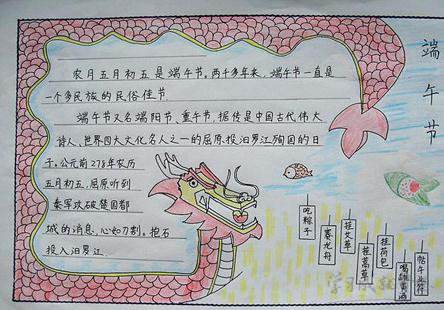 端午节
农月五月初五是端午节。两千多年来，端午节一直是
一个多民族的民俗佳节
端午节又名端阳节、重午节，据传是中国古代伟大
诗人、世界四大文化名人之一的屈原，投汨罗江殉国的日
子。公元前278年农历
五月初五，屈原听到
秦军攻破楚国都
城的消息，心如刀割。抱石
投入汨罗江
吃粽子
赛龙舟
挂艾草
挂菖蒲
挂荷包
喝雄黄酒